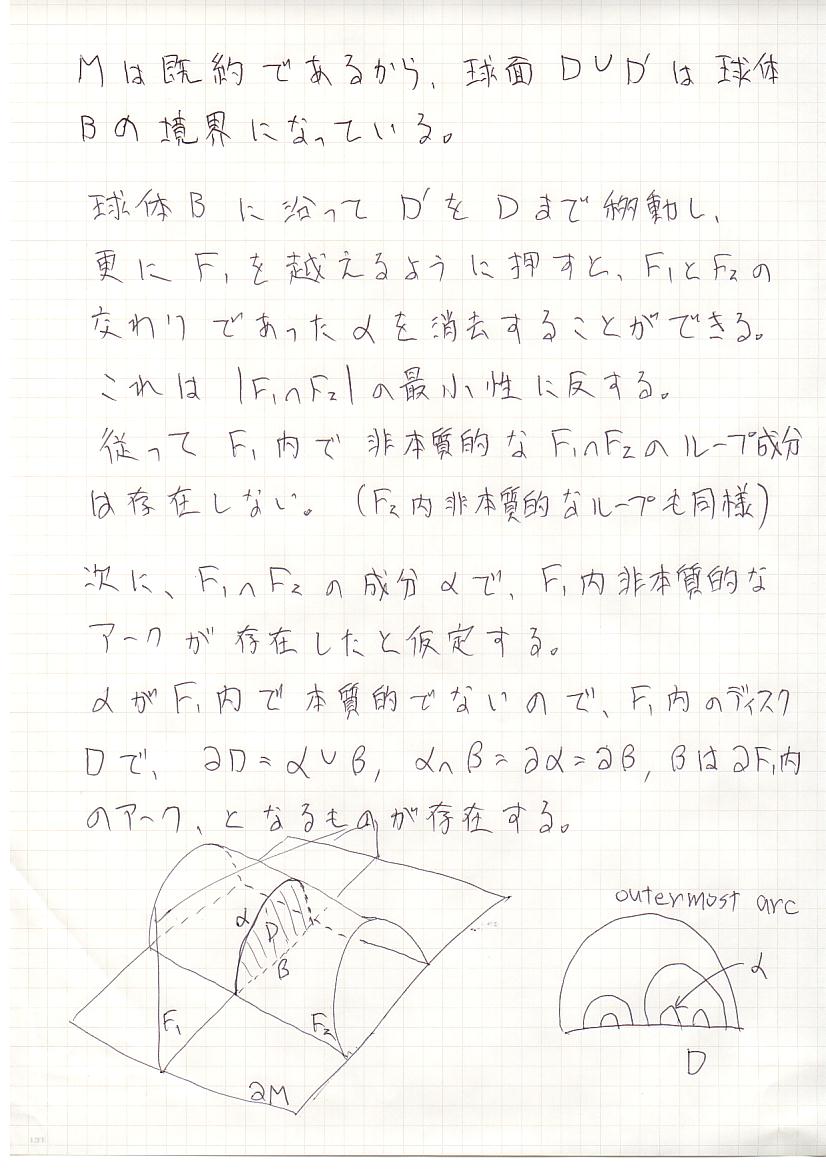 Mは既約であるから、球面 D∪D' は球体
Bの境界になっている。
球体B に沿って D'を Dまで移動し、
更に F₁を越えるように押すと、F₁とF₂の
交わりであったαを消去することができる。
これは |F₁∩F₂| の最小性に反する。
従って F₁内で 非本質的な F₁∩F₂のループ成分
は存在しない。(F₂内非本質的なループも同様)
次に、F₁∩F₂ の成分 αで、F₁内非本質的な
アークが存在したと仮定する。
αがF₁内で本質的でないので、F₁内のディスク
Dで、∂D=α∪β, α∩β=∂α=∂β, βは∂F₁内
のアーク、となるものが存在する。
α
D
β
F₁
F₂
∂M
outermost arc
α
D